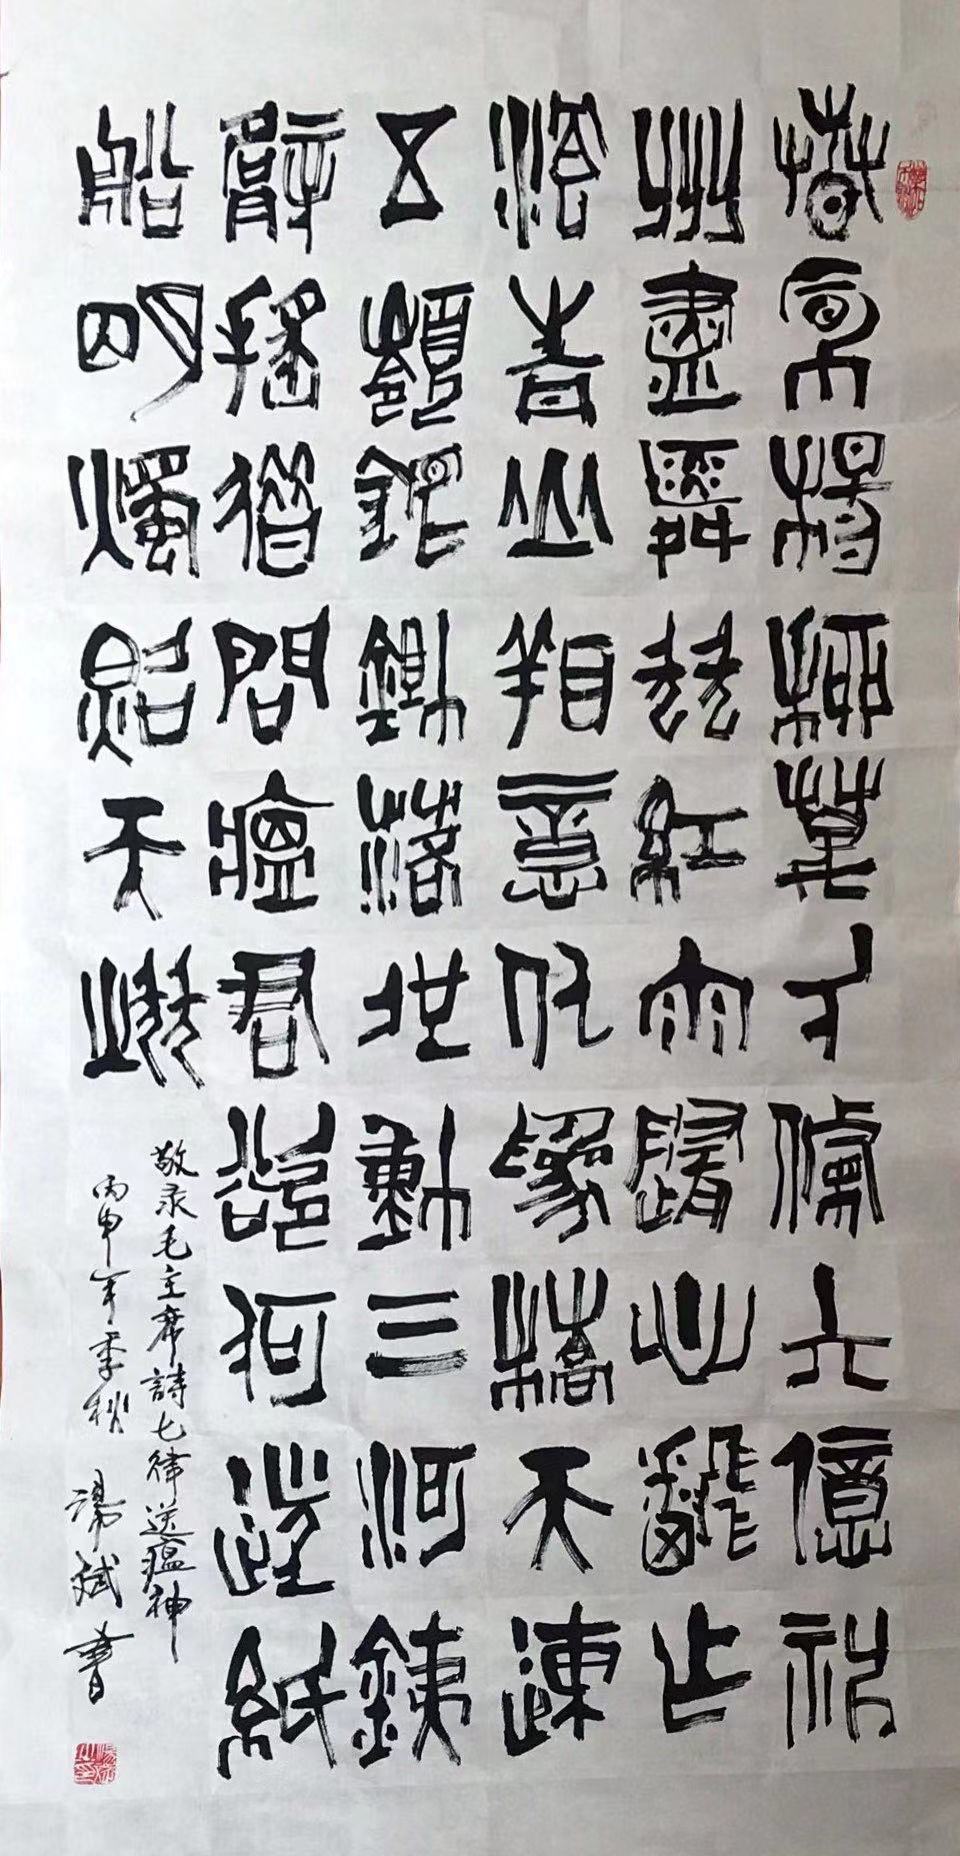 春風楊柳萬千條六億神
州盡舜堯紅雨隨心翻作
浪青山着意化為橋天連
五嶺銀鋤落地動三河鐵
臂搖借問瘟君欲何往紙
船明燭照天燒
敬录毛主席詩七律送瘟神
丙申年季秋 湯斌書